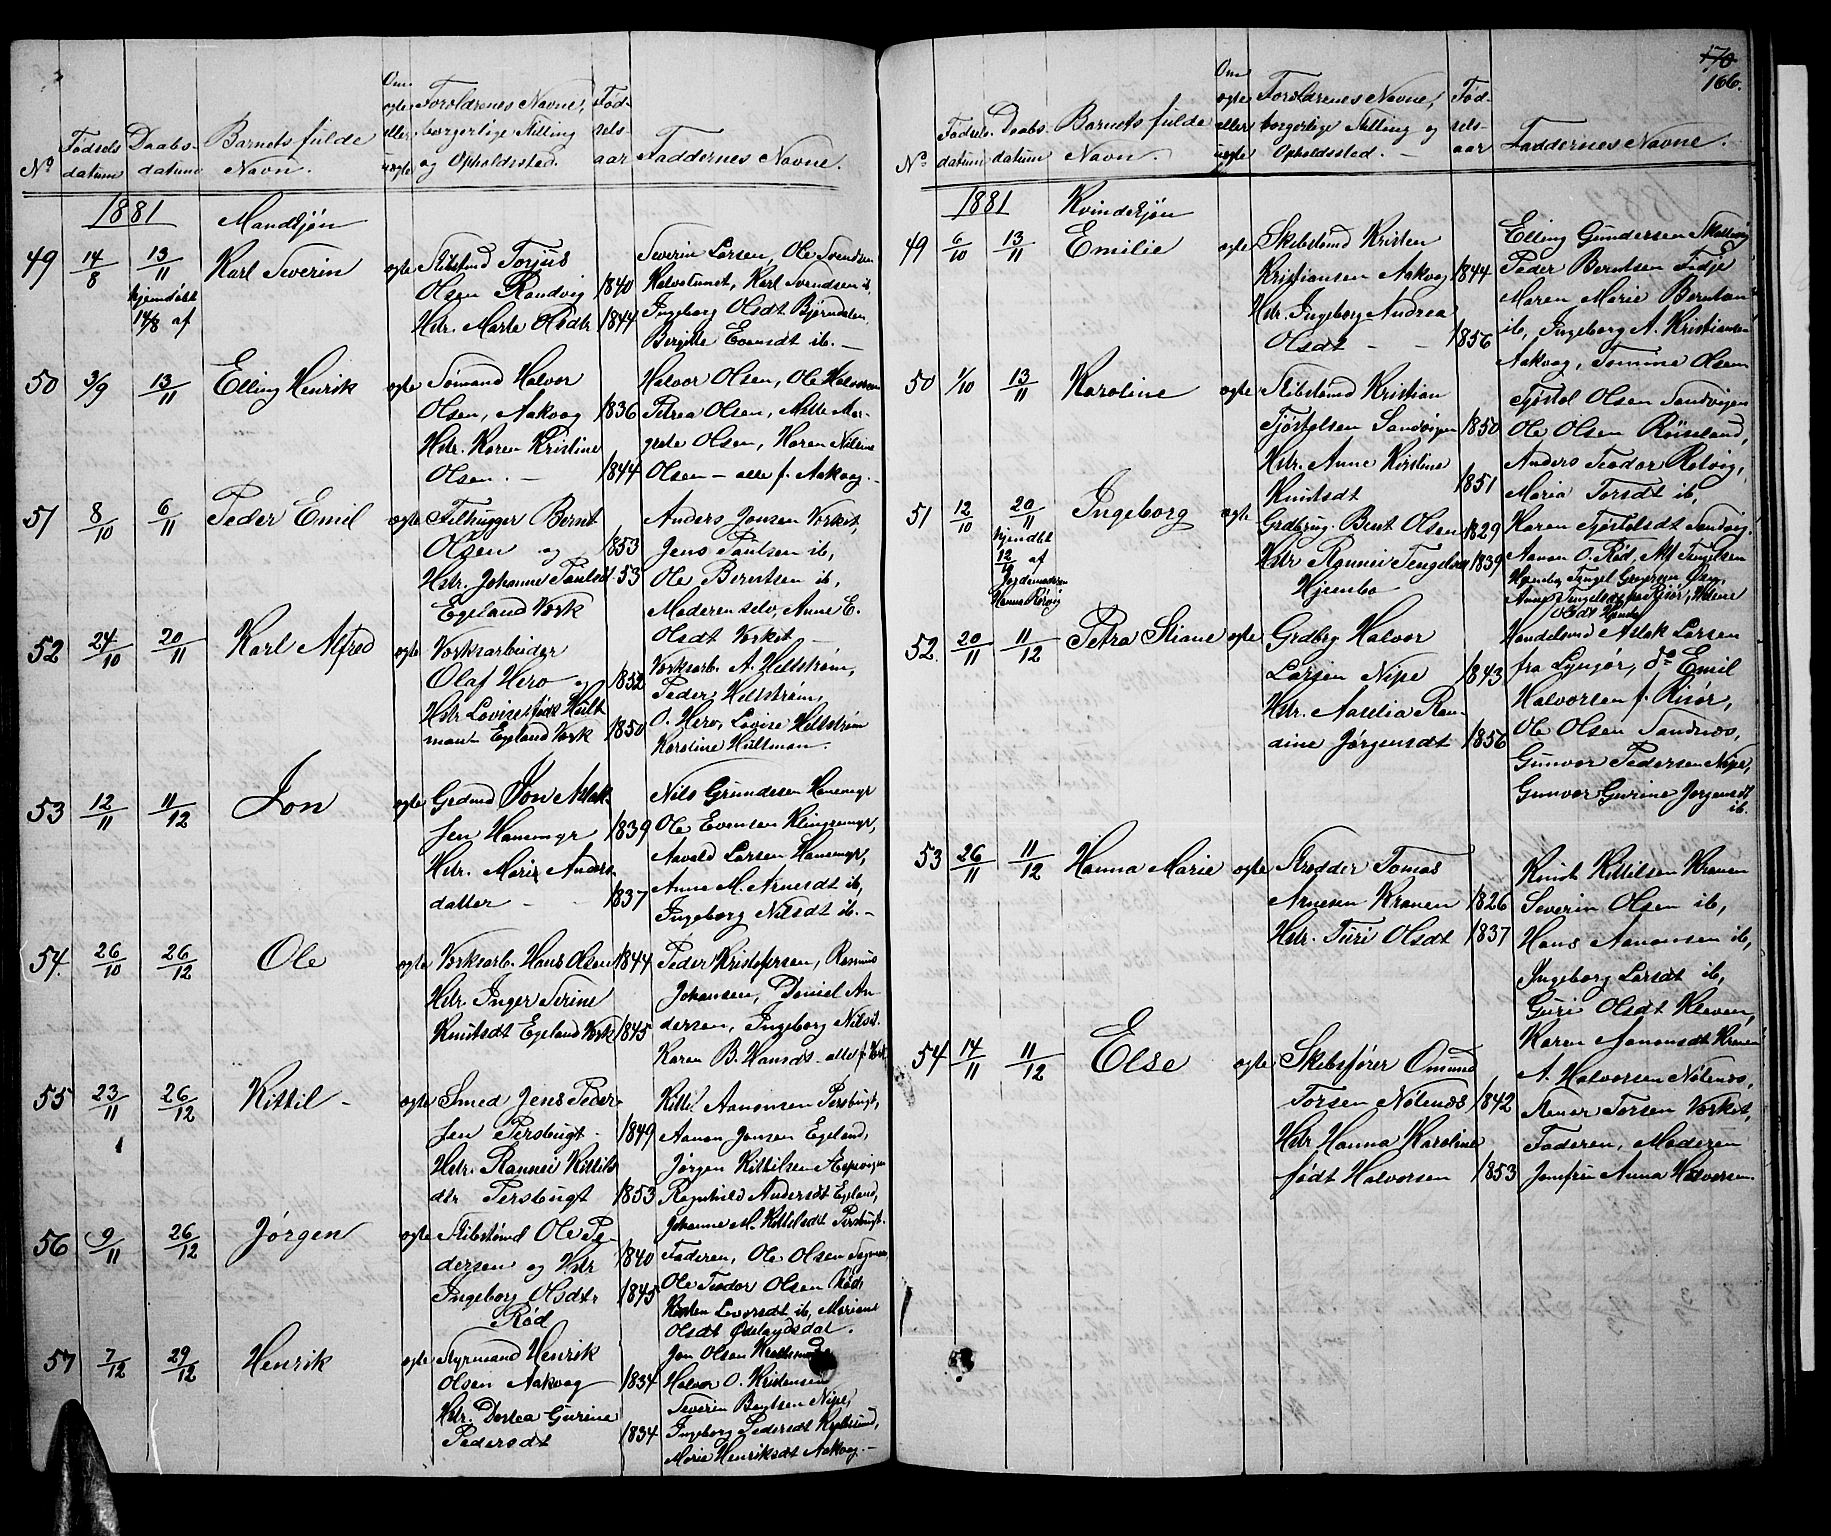 Nº
Fødsels datum
Daabs- datum
Barnets fulde Navn.
Om ægte eller uægte
Forældrenes Navne, borgerlige Stilling og Opholdssted.
Fød- sels- aar
Faddernes Navne.
1881 Mandkjøn
49 14/8 13/11 Karl Severin ægte Skibstmd Torjus
hjemdøbt Olsen Randvig 1840
14/8 af Hstr. Marte Olsdtr 1844
Severin Larsen, Ole Svendsen
Halvstunet, Karl Svendsen ib,
Ingeborg Olsdt Bjørndalen,
Birgitte Evensdt ib. –
50 3/9 13/11 Elling Henrik ægte Sømand Halvor
Olsen, Aakvag 1836
Hstr. Karen Kristine
Olsen. – 1844
Halvor Olsen, Ole Halvorsen
Petrea Olsen, Mette Mar-
grete Olsen, Karen Nilsine
Olsen – alle f. Aakvag. –
51 8/10 6/11 Peder Emil ægte Filhugger Bernt
Olsen og 1853
Hstr. Johanne Paulsdt 53
Egeland Værk
Anders Jensen Værket,
Jens Paulsen ib,
Ole Berntsen ib,
Moderen selv, Anne E.
Olsdt Værket –
52 24/10 20/11 Karl Alfred ægte Værksarbeider
Olaf Hero og 1852
Hstr Lovise født Hult
man – Egeland Værk 1850
Værksarb. A. Hellstrøm,
Peder Hellstrøm,
O. Hero, Lovise Hellstrøm
Karoline Hultman.
53 12/11 11/12 Jon ægte Grdmd Jon Aslak-
sen Hanemyr 1839
Hstr. Marie Anders-
datter – - 1837
Nils Gundesen Hanemyr
Ole Evensen Klingremyr,
Aavald Larsen Hanemyr,
Anne M. Arnesdt ib,
Ingeborg Nilsdt ib. –
54. 26/10 26/12 Ole ægte Værksarb. Hans Olsen 1844
Hstr. Inger Serine
Knutsdt Egeland Værk 1845
Peder Kristofersen, Rasmus
Johansen, Daniel An
dersen, Ingeborg Nilsdt.
Karen B. Hansdt. alle f. Værk.
55 23/11 26/12 Kittil – ægte Smed Jens Peder-
sen Persbugt – 1849
Hstr. Rannei Kittils
dtr Persbugt 1853
Kittil Aanonsen Persbugt,
Aanon Jensen Egeland,
Jørgen Kittilsen Aspevigen
Ragnhild Andersdt Egeland,
Johanne M. Kittilsdt Persbugt.
56 9/11 26/12 Jørgen ægte Skibstømd Ole Pe-
dersen og Hstr 1840
Ingeborg Olsdtr 1845
Rød
Faderen, Ole Olsen
Ole Teodor Olsen Rød,
Kirsten Levorsdt ib, Mariane
Olsdt Ødelandsdal.
57 7/12 29/12 Henrik ægte Styrmand Henrik
Olsen Aakvag 1834
Hstr. Dortea Gurine
Pedersdt 1834
Jon Olsen
Halvor O. Kristensen
Severin Bentsen Nipe,
Ingeborg Pedersdt
Marie Henriksdt Aakvag. –
170
166.
Nº
Fødsels- datum
Daabs- datum
Barnets fulde Navn.
Om ægte eller uægte
Forældrenes Navne, borgerlige Stilling og Opholdssted. –
Fød- sels- aar
Faddernes Navne.
1881 Kvindekjøn
49 6/10 13/11 Emilie ægte Skibstømd Kristen
Kristiansen Aakvag 1844
Hstr. Ingeborg Andrea
Olsdt – - 1856
Elling Gundersen
Peder Berntsen Fidje
Maren Marie Berntsen
ib, Ingeborg A. Kristiansen
Aakvag, Tomine Olsen
50 1/10 13/11 Karoline ægte Skibstømd Kristian
Tjøstolsen Sandvigen 1850
Hstr. Anne Kirstine
Knutsdt 1851
Tjøstol Olsen Sandvigen
Ole Olsen Røiseland,
Anders Teodor Rølvig,
Maria Torsdt ib,
Karen Tjøstolsdt Sandvig.
51 12/10 20/11 Ingeborg ægte Grdbrug. Bent Olsen 1829
hjemdøbt Hstr Rannei Tengelsdt 1839
12/10 af Hjembo
Jordemoderen
Hanna Rørvig
Aanon O. Rød, Alf Tengelsen
Hjembo, Tengel Gregersen
Anne Tengelsdt Risør, Helene
Olsdt Hjembo
52. 20/11 11/12 Petra Stiane ægte Grdbrg Halvor
Larsen Nipe 1843
Hstr. Aaselia Ran-
dine Jørgensdt 1856
Handelsmd Aslak Larsen
fra Lyngør, do Emil
Halvorsen f. Risør,
Ole Olsen Sandnæs,
Gunvor Pedersen Nipe,
Gunvor Gurine Jørgensdt
ib.
53 26/11 11/12 Hanna Marie ægte Skrædder Tomas
Arnesen Kranen 1826
Hstr. Turi Olsdt 1837
Knut Kittilsen Kranen
Severin Olsen ib,
Hans Aanonsen ib,
Ingeborg Larsdt ib,
Guri Olsdt Kleven,
Karen Aanonsdt Kranen
54 14/11 11/12 Else ægte Skibsfører Omund
Torsen Nætenæs 1842
Hstr Hanna Karoline
født Halvorsen 1853
A. Halvorsen Nætenæs,
Stener Torsen Værket,
Faderen, Moderen
Jomfru Anna Halvorsen.